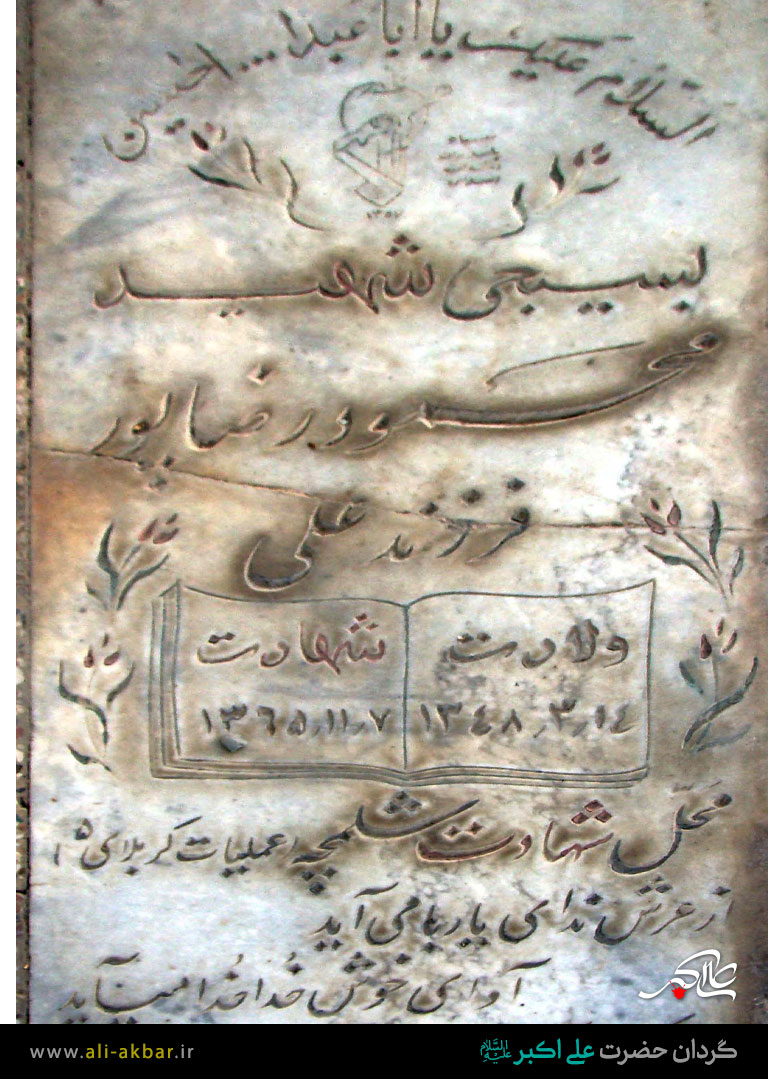 السلام علیک یا ابا عبدا... الحسین
۱۳۵۷
بسیجی شهید
محمود رضاپور
فرزند علی
ولادت شهادت
۱۳۴۸٫۳٫۱۴ ۱۳۶۵٫۱۱٫۷
محل شهادت شلمچه (عملیات کربلای ۵)
از عرش ندای یا ربا می آید
آوای خوش خدا خدا میآید
گردان حضرت علی اکبر علیه السلام
www.ali-akbar.ir